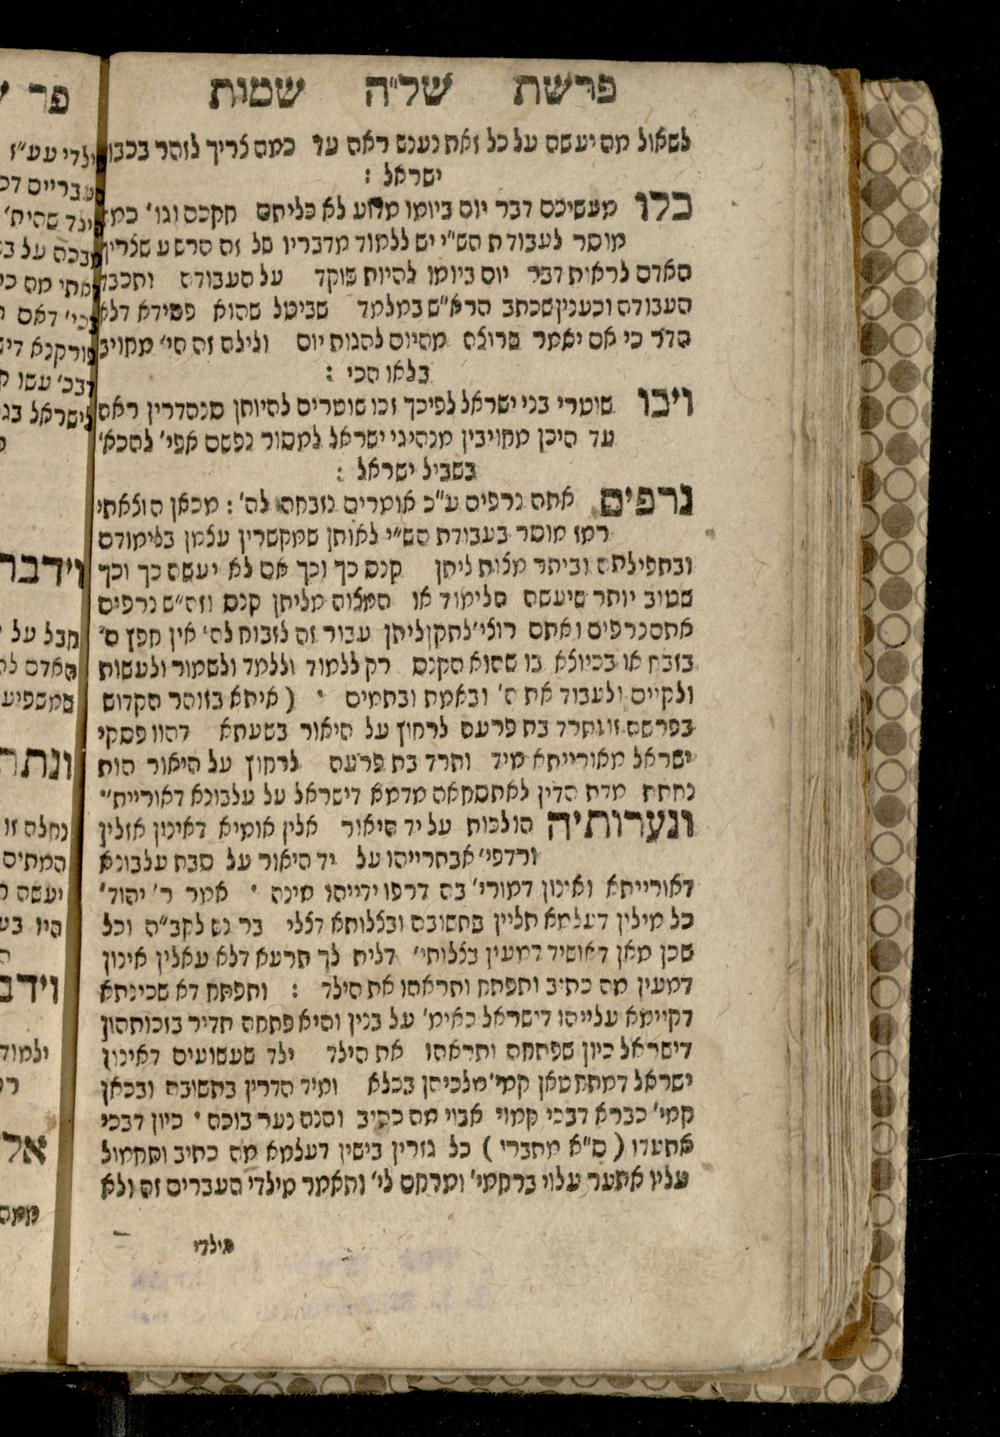 פרשת של״ה שמות
לשאול מה יעשה על כל זאת נענש ראה עד כמה צריך לזהר בכבוד
ישראל :
כלו מעשיכם דבר יום ביומו מדוע לא כליתם חקכם וגו׳ כמה
מוסר לעבודת הש״י יש ללמוד מדבריו של זה הרשע שצריך
האדם לראית דבר יום ביומו להיות פוקד על העבודה ותכבד
העבודה וכענין שכתב הרא״ש במלמד שביטל שהוא פסידא דלא
הדר כי אם יאמר ארוצה מהיום להגות יום ולילה זה הי׳ מחויב
בלאו הכי :
ויכו שוטרי בני ישראל לפיכך זכו שוטרים להיותן סנהדרין ראה
עד היכן מחויבין מנהיגי ישראל למסור נפשם אפי׳ להכא׳
בשביל ישראל :
נרפים אתם נרפים ע״כ אומרים נזבחה לה׳ : מכאן הוצאתי
רמז מוסר בעבודת הש״י לאותן שמקשרין עצמן בלימודם
ובתפילתם וביתר מצות ליתן קנס כך וכך אם לא יעשה כך וכך
שטוב יותר שיעשה הלימוד או המצוה מליתן קנס וזה״ש נרפים
אתם נרפים ואתם רוצי׳ לתקן ליתן עבור זה לזבוח לה׳ אין חפץ ה׳
בזבח או בכיוצא בו שהוא הקנס רק ללמוד וללמד ולשמור ולעשות
ולקיים ולעבוד את ה׳ ובאמת ובתמים ׳ ( איתא בזוהר הקדוש
בפרשה זו ותרד בת פרעה לרחוץ על היאור בשעתא דהוו פסקי
ישראל מאורייתא מיד ותרד בת פרעה לרחוץ על היאור הות
נחתת מדת הדין לאתסחאה מדמא דישראל על עלבונא דאוריית׳
ונערותיה הולכות על יד היאור אלין אומיא דאינון אזלין
ורדפי׳ אבתרייהו על יד היאור על סבת עלבונא
דאורייתא ואינון דמורי׳ בה דרפו ידייהו מינה ׳ אמר ר׳ יהוד׳
כל מילין דעלמא תליין בתשובה ובצלותא דצלי בר נש לקב״ה וכל
שכן מאן דאושיד דמעין בצלותי׳ דלית לך תרעא דלא עאלין אינון
דמעין מה כתיב ותפתח ותראהו את הילד : ותפתח דא שכינתא
דקיימא עלייהו דישראל כאימ׳ על בנין והיא פתחה תדיר בזכותהון
דישראל כיון שפתחה ותראהו את הילד ילד שעשועים דאינון
ישראל דמתחטאן קמי׳ מלכיהן בכלא ומיד הדרין בתשובה ובכאן
קמי׳ כברא דבכי קמוי אבוי מה כתיב והנה נער בוכה ׳ כיון דבכי
אתעדו ( ס״א מתברי ) כל גזרין בישין דעלמא מה כתיב ותחמול
עליו אתער עלוי ברחמי׳ ומרחם לי׳ ותאמר מילדי העברים זה ולא
מילדי